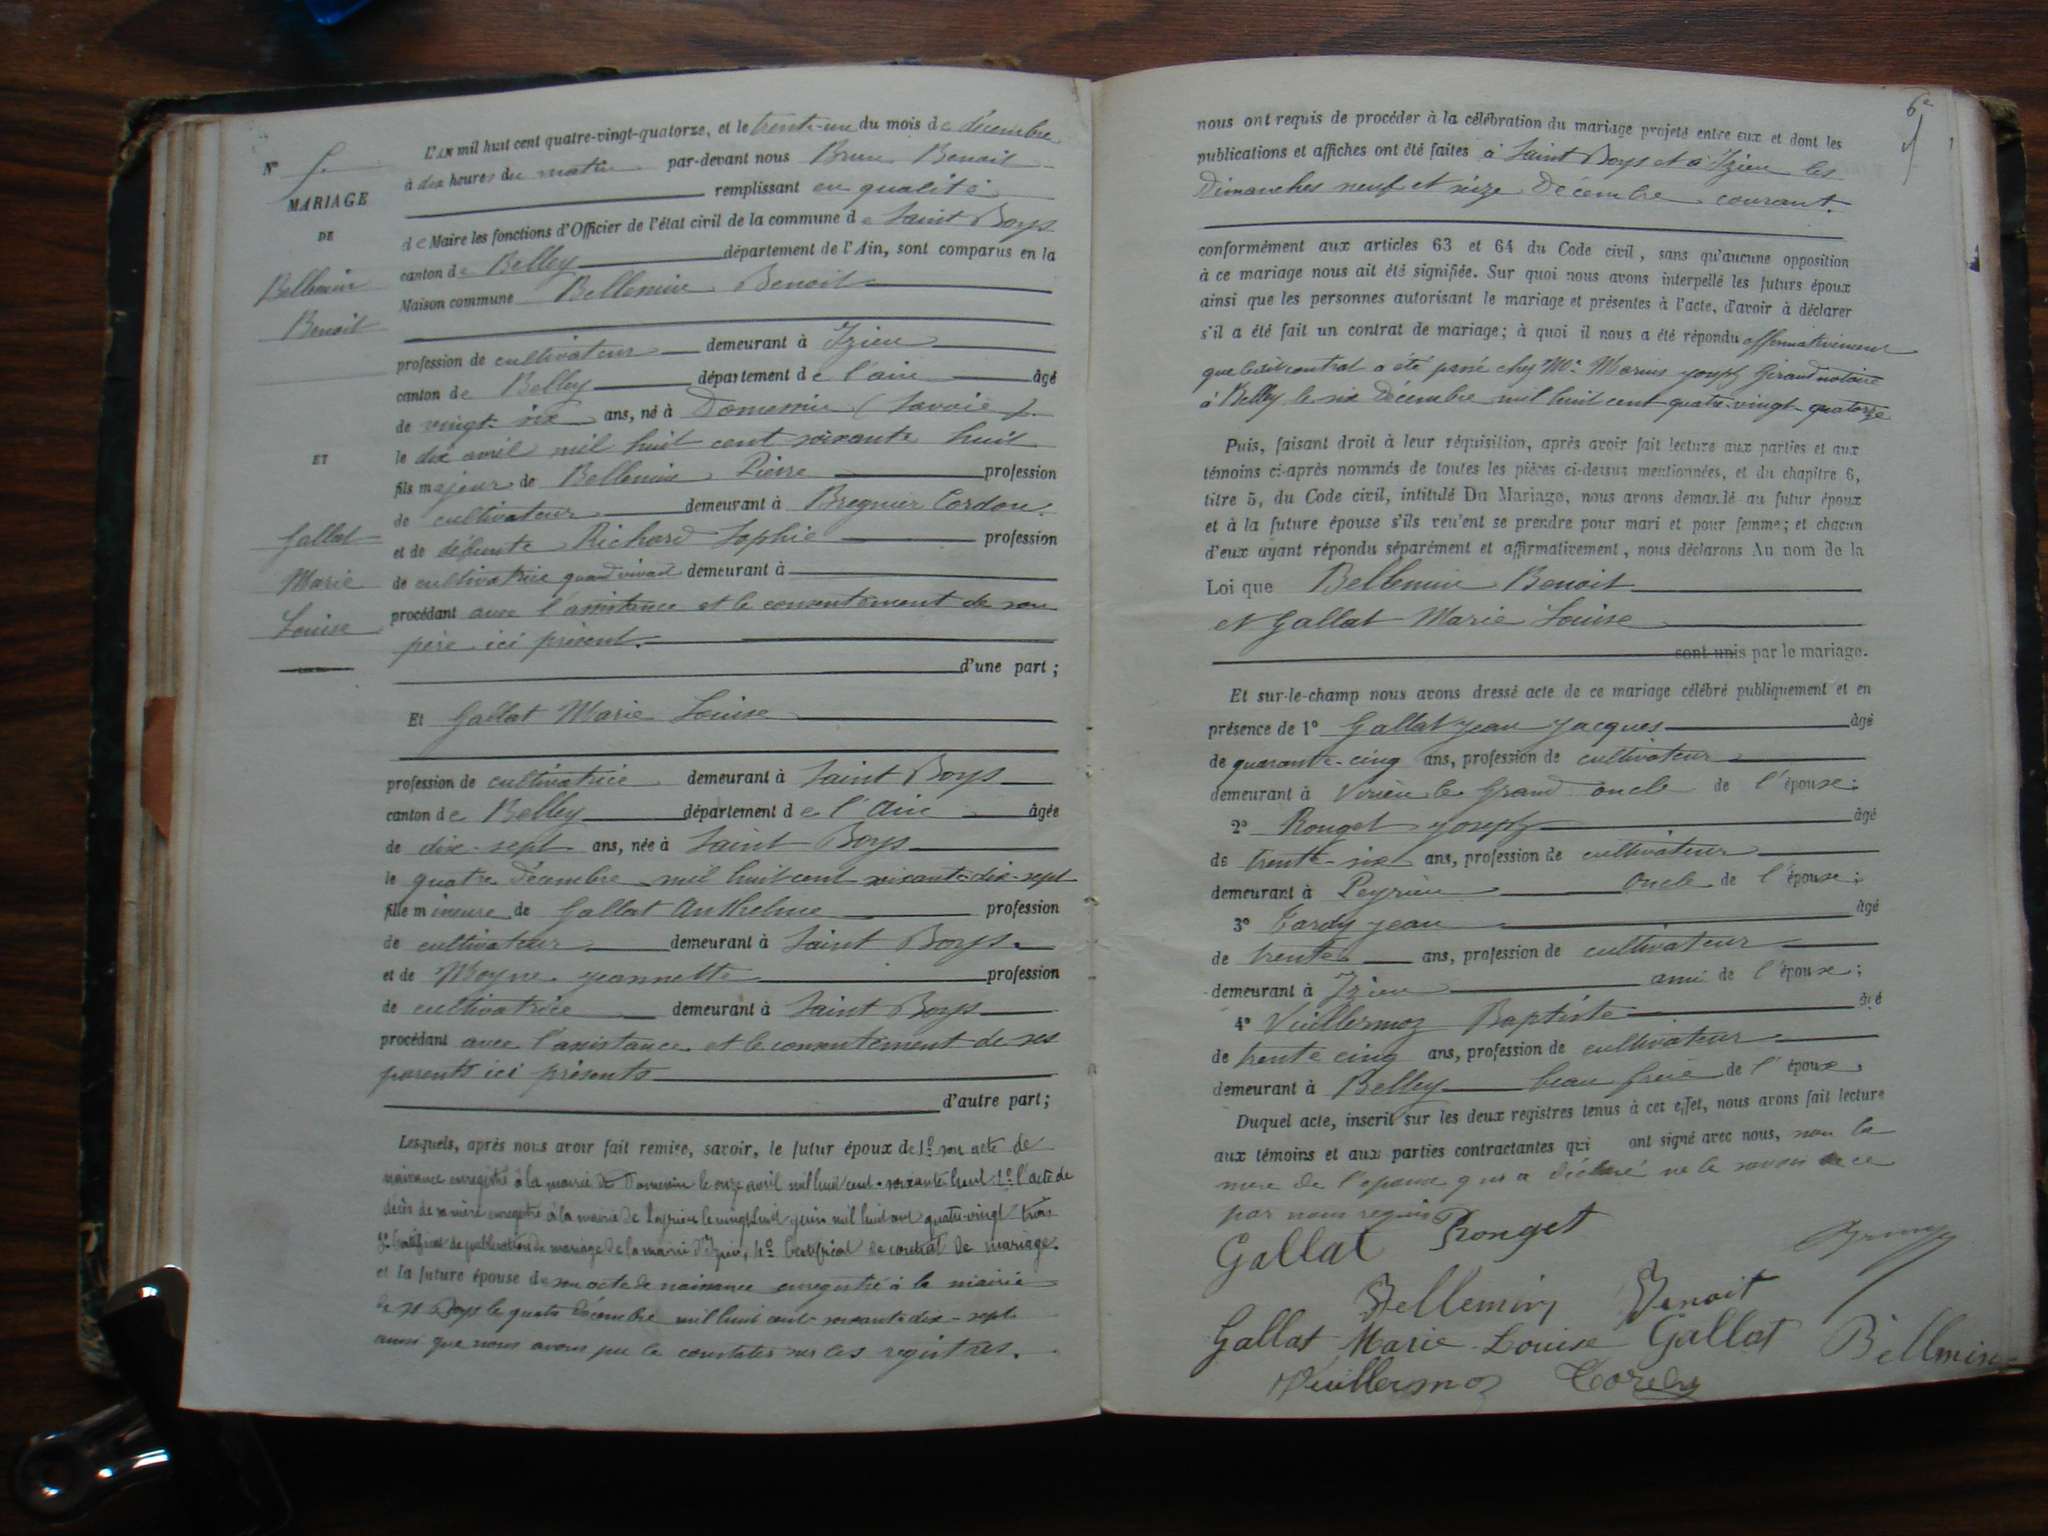 L'AN mil huit cent quatre-vingt-quatorze, et le trente-un du mois de décembre
N°
à dix heures du matin par-devant nous Brun Benoit
MARIAGE
remplissant en qualité
DE
de Maire les fonctions d'Officier de l'état civil de la commune de Saint Boys
canton de Belley département de l'Ain, sont comparus en la
Bellemin
Maison commune Bellemin Benoit
Benoit
profession de cultivateur demeurant à Izieu
canton de Belley département de l'ain âgé
de vingt-six ans, né à Domessin (Savoie).
ET
le dix avril mil huit cent soixante huit
fils majeur de Bellemin Pierre profession
de cultivateur demeurant à Bregnier Cordon.
Gallat
et de défunte Richard Sophie profession
Marie
de cultivatrice quand vivait demeurant à
Louise
procédant avec l'assistance et le consentement de son
père ici présent.
d'une part ;
Et Gallat Marie Louise
profession de cultivatrice demeurant à Saint Boys
canton de Belley département de l'Ain âgée
de dix-sept ans, née à Saint Boys
le quatre Décembre mil huit cent soixante-dix-sept
fille mineure de Gallat Anthelme profession
de cultivateur demeurant à Saint Boys.
et de Moyne Jeannette profession
de cultivatrice demeurant à Saint Boys
procédant avec l'assistance et le consentement de ses
parents ici présents
d'autre part ;
Lesquels, après nous avoir fait remise, savoir, le futur époux de 1° son acte de
naissance enregistré à la mairie de Domessin le onze avril mil huit cent soixante huit 2° l'acte de
décès de sa mère enregistré à la mairie de Peyrieu le vingt huit juin mil huit cent quatre-vingt trois
3° Certificat de publication de mariage de la mairie d'Izieu, 4° Certificat de contrat de mariage.
et la future épouse de son acte de naissance enregistré à la mairie
de St Boys le quatre Décembre mil huit cent soixante dix-sept
ainsi que nous avons pu le constater sur les registres.
6e
nous ont requis de procéder à la célébration du mariage projeté entre eux et dont les
publications et affiches ont été faites à Saint Boys et à Izieu les
Dimanches neuf et seize Décembre courant.
conformément aux articles 63 et 64 du Code civil, sans qu'aucune opposition
à ce mariage nous ait été signifiée. Sur quoi nous avons interpellé les futurs époux
ainsi que les personnes autorisant le mariage et présentes à l'acte, d'avoir à déclarer
s'il a été fait un contrat de mariage ; à quoi il nous a été répondu affirmativement
que ledit contrat a été passé chez Me Marius Joseph Giraud notaire
à Belley le six Décembre mil huit cent quatre-vingt-quatorze
Puis, faisant droit à leur réquisition, après avoir fait lecture aux parties et aux
témoins ci-après nommés de toutes les pièces ci-dessus mentionnées, et du chapitre 6,
titre 5, du Code civil, intitulé Du Mariage, nous avons demandé au futur époux
et à la future épouse s'ils veulent se prendre pour mari et pour femme ; et chacun
d'eux ayant répondu séparément et affirmativement, nous déclarons Au nom de la
Loi que Bellemin Benoit
et Gallat Marie Louise
sont unis par le mariage.
Et sur-le-champ nous avons dressé acte de ce mariage célébré publiquement et en
présence de 1° Gallat Jean Jacques âgé
de quarante-cinq ans, profession de cultivateur
demeurant à Virieu le Grand oncle de l'épouse ;
2° Rouget Joseph âgé
de trente-six ans, profession de cultivateur
demeurant à Peyrieu Oncle de l'épouse ;
3° Tardy Jean âgé
de trente ans, profession de cultivateur
demeurant à Izieu ami de l'épouse ;
4° Vuillermoz Baptiste âgé
de trente cinq ans, profession de cultivateur
demeurant à Belley beau frère de l'épouse
Duquel acte, inscrit sur les deux registres tenus à cet effet, nous avons fait lecture
aux témoins et aux parties contractantes qui ont signé avec nous, non la
mère de l'épouse qui a déclaré ne le savoir de ce
par nous requis
Gallat Rouget
Bellemin Benoit
Gallat Marie Louise Gallat Bellemin
Vuillermoz